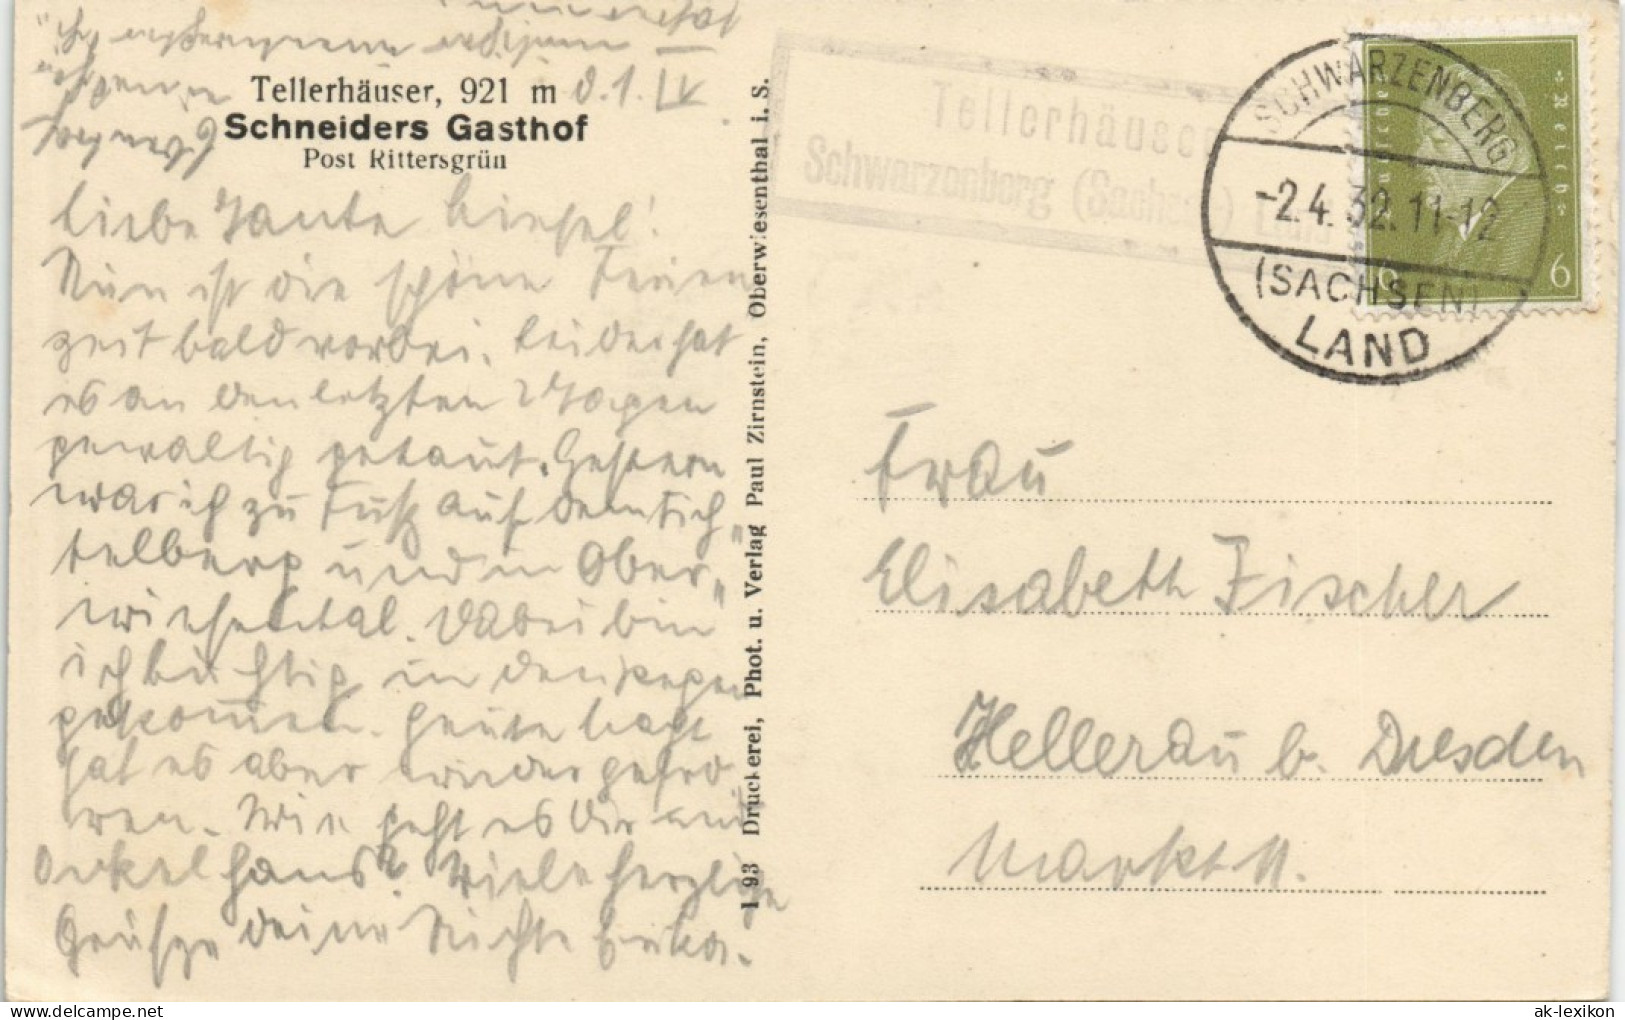 Tellerhäuser, 921 m
Schneiders Gasthof
Post Rittersgrün
d. 1. IV
Liebe Tante Liesel!
Nun ist die schöne Ferien
zeit bald vorbei. Leider hat
es an den letzten Tagen
gewaltig getaut. Gestern
war ich zu Fuß auf dem Fich„
telberg und in Ober„
wiesenthal. Dabei bin
ich tüchtig in den Regen
gekommen. Heute Nacht
hat es aber wieder gefro
ren. Wie geht es Dir und
Onkel Hans? Viele herzliche
Grüße deine Nichte Erika.
I 93 Druckerei, Phot. u. Verlag Paul Zirnstein, Oberwiesenthal i. S.
Tellerhäuser
Schwarzenberg (Sachsen) Land
SCHWARZENBERG
-2.4.32.11-12
(SACHSEN)
LAND
Deutsches Reich
6 6
Frau
Elisabeth Fischer
Hellerau b. Dresden
Markt 11.
ak-lexikon